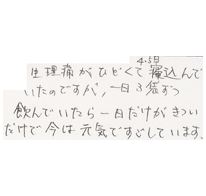 4.5日
生理痛がひどくて寝込んで
いたのですが、一日3袋ずつ
飲んでいたら一日だけがきつい
だけで今は元気ですごしています。